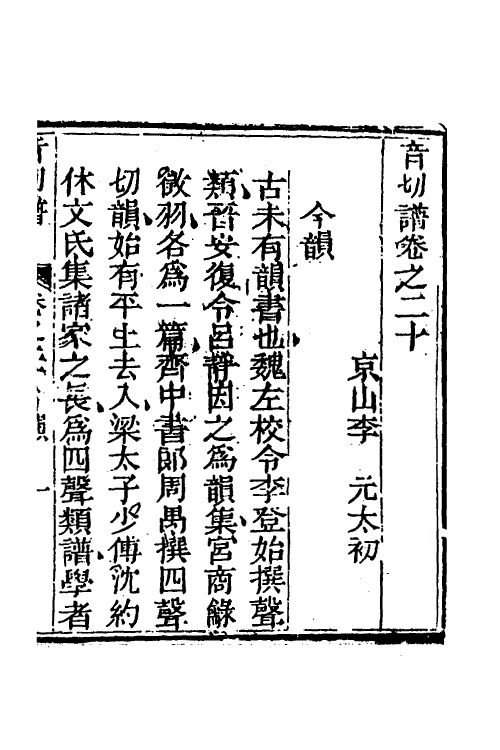 音切譜卷之二十
京山李　元太初
今韻
古未有韻書也魏左校令李登始撰聲
類晉安復令呂靜因之為韻集宮商䤸
徵羽各為一篇齊中書郎周禺撰四聲
切韻始有平上去入梁太子少傅沈約
休文氏集諸家之長為四聲類譜學者
音切譜